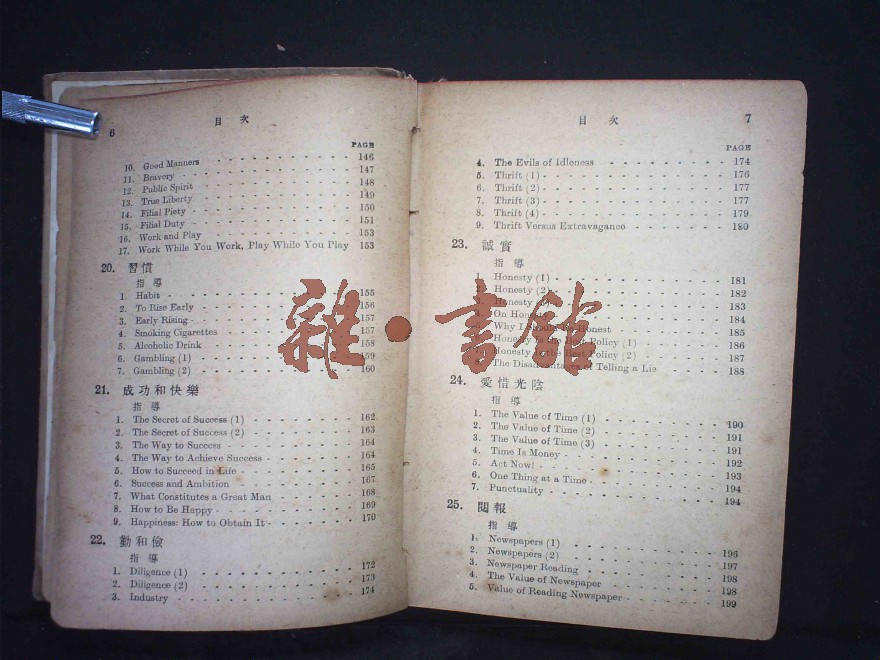 6
目 次
PAGE
10. Good Manners 146
11. Bravery 147
12. Public Spirit 148
13. True Liberty 149
14. Filial Piety 150
15. Filial Duty 151
16. Work and Play 153
17. Work While You Work, Play While You Play 153
20. 習慣
指 導
1. Habit 155
2. To Rise Early 156
3. Early Rising 157
4. Smoking Cigarettes 157
5. Alcoholic Drink 158
6. Gambling (1) 159
7. Gambling (2) 160
21. 成功和快樂
指 導
1. The Secret of Success (1) 162
2. The Secret of Success (2) 163
3. The Way to Success 164
4. The Way to Achieve Success 164
5. How to Succeed in Life 165
6. Success and Ambition 167
7. What Constitutes a Great Man 168
8. How to Be Happy 169
9. Happiness: How to Obtain It 170
22. 勤和儉
指 導
1. Diligence (1) 172
2. Diligence (2) 173
3. Industry 174
目 次
7
PAGE
4. The Evils of Idleness 174
5. Thrift (1) 176
6. Thrift (2) 177
7. Thrift (3) 177
8. Thrift (4) 179
9. Thrift Versus Extravagance 180
23. 誠實
指 導
1. Honesty (1) 181
2. Honesty (2) 182
Honesty 183
On Honesty 184
Why I Should Be Honest 185
Honesty Is the Best Policy (1) 186
Honesty Is the Best Policy (2) 187
The Disadvantages of Telling a Lie 188
24. 愛惜光陰
指 導
1. The Value of Time (1) 190
2. The Value of Time (2) 191
3. The Value of Time (3) 191
4. Time Is Money 192
5. Act Now! 193
6. One Thing at a Time 194
7. Punctuality 194
25. 閱報
指 導
1. Newspapers (1) 196
2. Newspapers (2) 197
3. Newspaper Reading 198
4. The Value of Newspaper 198
5. Value of Reading Newspaper 199
雜·書館